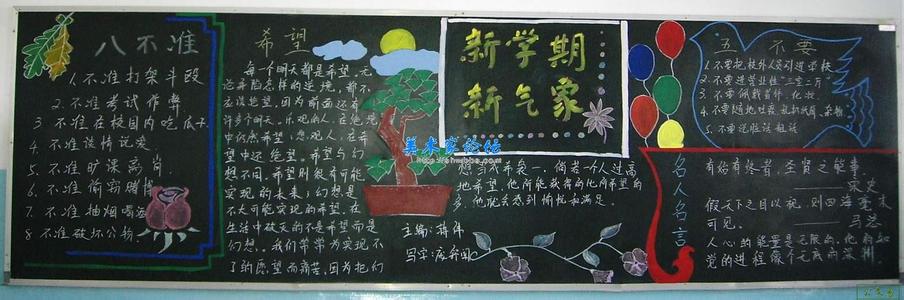 八不准
1.不准打架斗殴
2.不准考试作弊
3 不准在校园内吃瓜子
4 不准谈情说爱
5 不准旷课离肖
6 不准偷窃赌博
7 不准抽烟喝酒
8 不准破坏公物.
希望
每一个明天都是希望.无
论身陷怎样的逆境,都不
应该绝望,因为前面还有
许多个明天.乐观的人,在绝
望中仍然希望;悲观人,在希
望中还绝望.希望与幻
想不同,希望则很有可能
实现的未来;幻想是
不大可能实现的希望.在
生活中破灭的不是希望而是
幻想。我们常常为实现不
了的愿望而痛苦,因为把们
新学期
新气象
想当成希裘一,倘若一个人过高
地希望,他所能获得的他所希望的
多,他就会感到愉悦和满足。
主编:蒋伟
美术家论坛
五不要
1.不要把校外人员引进学校
2.不要进营业性"三室二厅"
3.不要佩戴首饰、化妆
5.不要说脏话粗话
名人名言
有始有终者,圣贤之能事
假天下之目以视,则四海毫末
可见.
人心的能量是无限的,